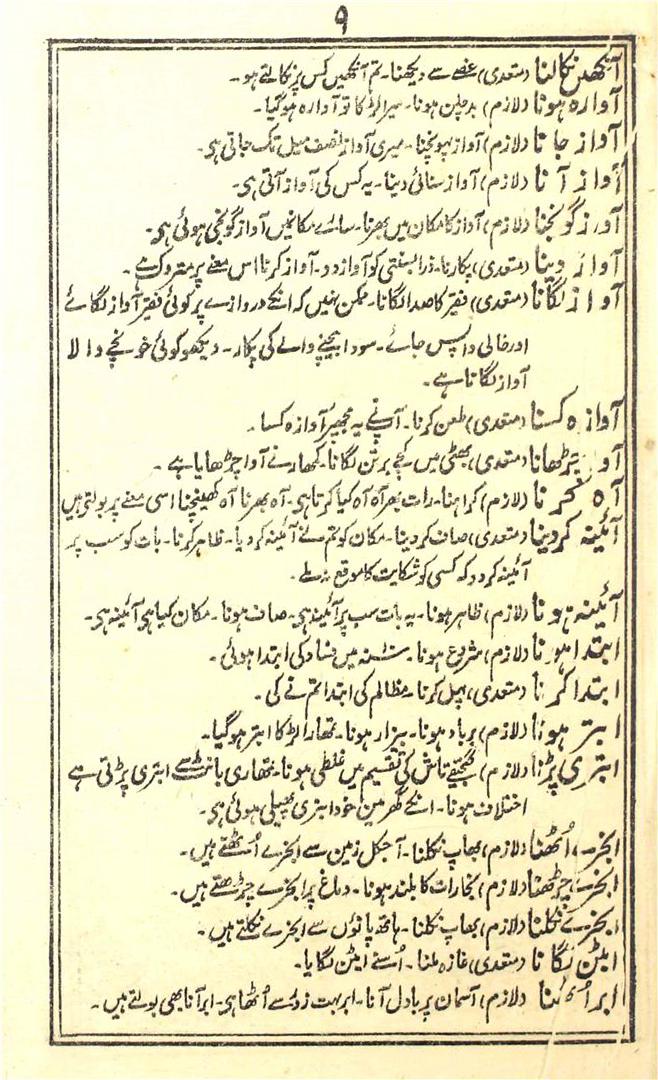 ۹
آنکھیں نکالنا (متعدی) غصے سے دیکھنا۔ تم آنکھیں کس پر نکالتے ہو۔
آوارہ ہونا (لازم) بدچلن ہونا۔ میرا لڑکا تو آوارہ ہوگیا۔
آواز جانا (لازم) آواز پہونچنا۔ میری آواز نصف میل تک جاتی ہی۔
آواز آنا (لازم) آواز سنائی دینا۔ یہ کس کی آواز آتی ہی۔
آواز گونجنا (لازم) آواز کا مکان میں بھرنا۔ سارے مکانمیں آواز گونجی ہوئی ہی۔
آواز دینا (متعدی) پکارنا۔ ذرا بہشتی کو آواز دو۔ آواز کرنا اس معنے پر متروک ہے۔
آواز لگانا (متعدی) فقیر کا صدا لگانا۔ ممکن نہیں کہ انکے دروازے پر کوئی فقیر آواز لگائے
اور خالی واپس جائے۔ سودا بیچنے والے کی پکار۔ دیکھو کوئی خوانچے والا
آواز لگاتا ہے۔
آوازہ کسنا (متعدی) طعن کرنا۔ آپنے یہ مجھپر آوازہ کسا۔
آوا چڑھانا (متعدی) بھٹی میں کچے برتن لگانا۔ کمھار نے آوا چڑھایا ہے۔
آہ کرنا (لازم) کراہنا۔ رات بھر آہ آہ کیا کرتا ہی۔ آہ بھرنا آہ کھینچنا اسی معنے پر بولتے ہیں
آئینہ کردینا (متعدی) صاف کردینا۔ مکان کو تم نے آئینہ کردیا۔ ظاہر کرنا۔ بات کو سب پر
آئینہ کردو کہ کسی کو شکایت کا موقع نہ ملے۔
آئینہ ہونا (لازم) ظاہر ہونا۔ یہ بات سب پر آئینہ ہی۔ صاف ہونا۔ مکان کیا ہی آئینہ ہی۔
ابتدا ہونا (لازم) شروع ہونا۔ میں فساد کی ابتدا ہوئی۔
ابتدا کرنا (متعدی) پہل کرنا۔ مظالم کی ابتدا تم نے کی۔
ابتر ہونا (لازم) برباد ہونا۔ بیزار ہونا۔ تمھارا لڑکا ابتر ہوگیا۔
ابتری پڑنا (لازم) گنجفے تاش کی تقسیم میں غلطی ہونا۔ تمھاری بانٹ سے ابتری پڑتی ہے
اختلاف ہونا۔ انکے گھر مین خود ابتری پھیلی ہوئی ہی۔
ابخرے اُٹھنا (لازم) بھاپ نکلنا۔ آجکل زمین سے ابخرے اُٹھتے ہیں۔
ابخرے چڑھنا (لازم) بخارات کا بلند ہونا۔ دماغ پر ابخرے چڑھتے ہیں۔
ابخرے نکلنا (لازم) بھاپ نکلنا۔ ہاتھ پانوں سے ابخرے نکلتے ہیں۔
ابٹن لگانا (متعدی) غازہ ملنا۔ اُسنے ابٹن لگایا۔
ابر اُٹھنا (لازم) آسمان پر بادل آنا۔ ابر بہت زور سے اُٹھا ہی۔ ابر آنا بھی بولتے ہیں۔